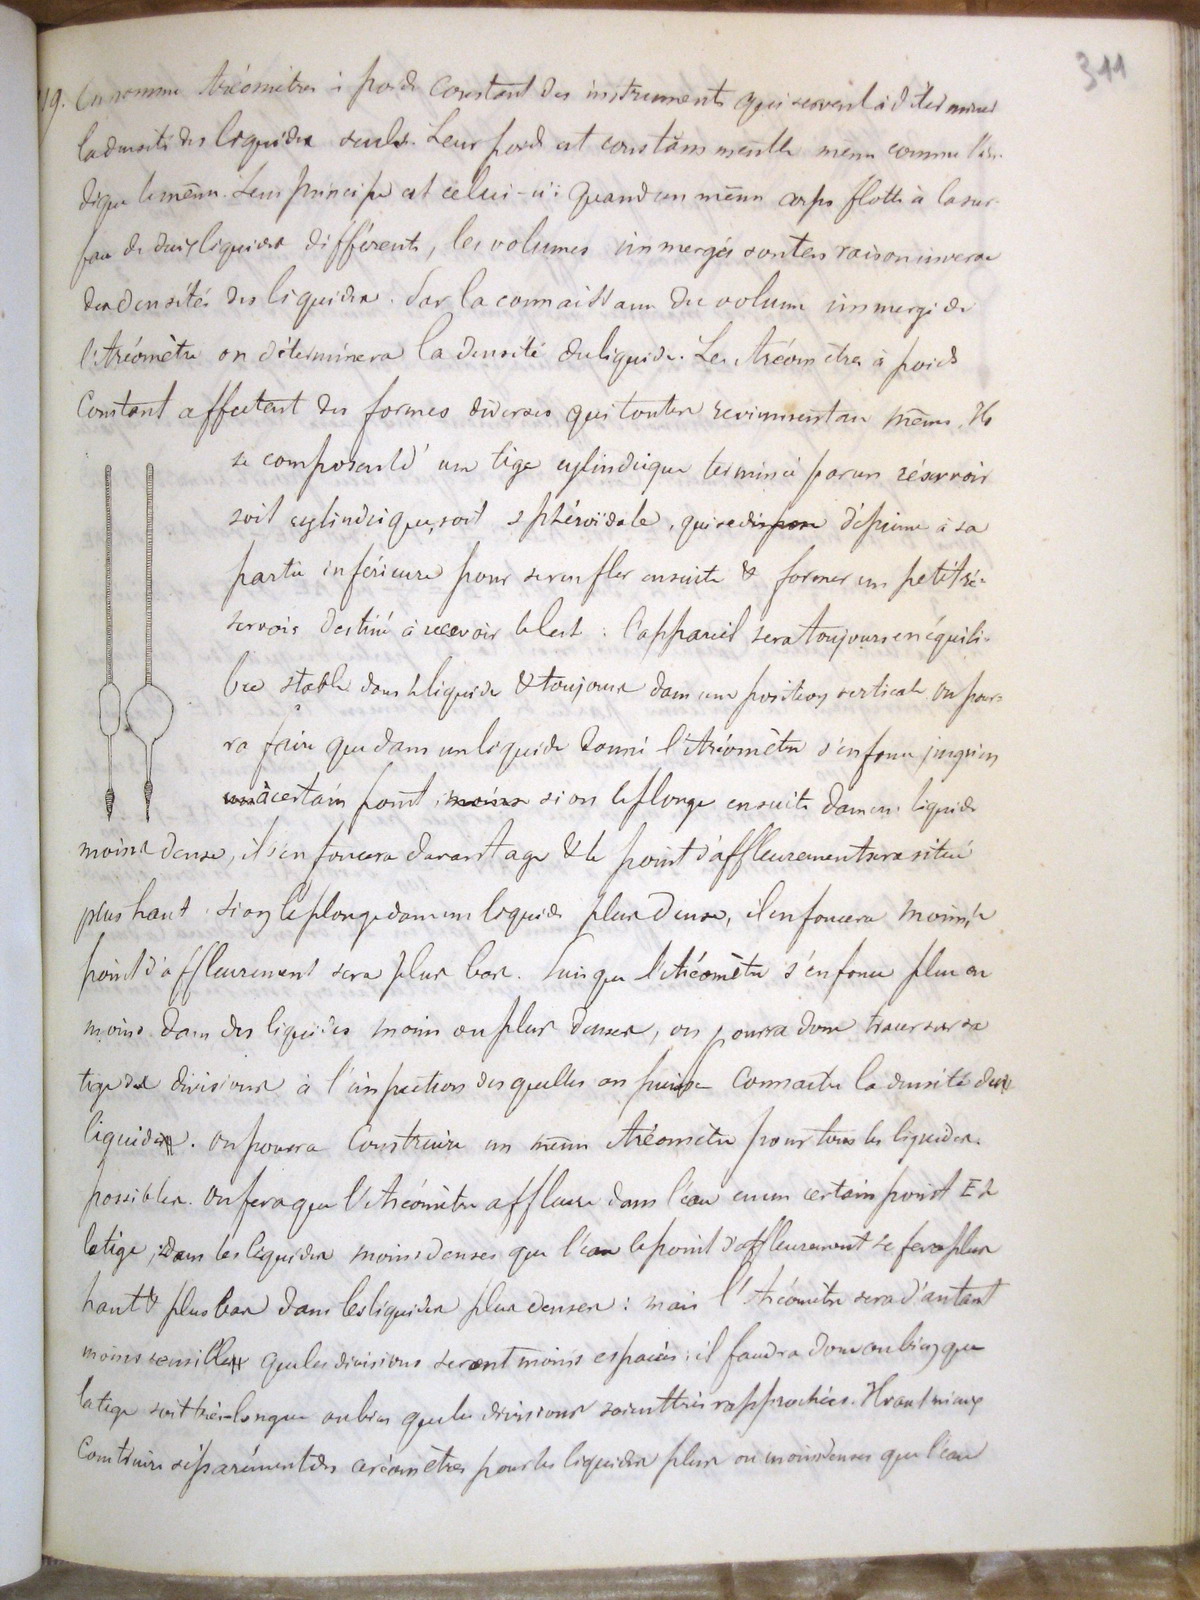 311
19. On nomme Aréomètres à poids constant des instruments qui servent à déterminer
la densité des liquides seuls. Leur poids est constamment le même comme l'in-
dique le même. Leur principe est celui-ci: quand un même corps flotte à la sur-
face de deux liquides différents, les volumes immergés sont en raison inverse
des densités des liquides. Par la connaissance du volume immergé de
l'Aréomètre on déterminera la densité du liquide. Les Aréomètres à poids
Constant affectent des formes diverses qui toutes reviennent au même. Ils
se composent d'une tige cylindrique terminée par un réservoir
soit cylindrique, soit sphéroïdale, qui se dispose déprime à sa
partie inférieure pour se renfler ensuite & former un petit ré-
servoir destiné à recevoir le lest : l'appareil sera toujours en équili-
bre stable dans le liquide & toujours dans une position verticale on pour-
ra faire que dans un liquide donné l'Aréomètre s'enfonce jusqu'en
un à certain point, moins si on le plonge ensuite dans un liquide
moins dense, il s'enfoncera davantage & le point d'affleurement sera situé
plus haut si on le plonge dans un liquide plus dense, il enfoncera moins, le
point d'affleurement sera plus bas. Puisque l'Aréomètre s'enfonce plus ou
moins dans des liquides moins ou plus denses, on pourra donc tracer sur sa
tige des divisions à l'inspection desquelles on puisse connaître la densité des
liquides. On pourra Construire un même Aréomètre pour tous les liquides
possibles. On fera que l'Aréomètre affleure dans l'eau en un certain point E de
la tige; dans les liquides moins denses que l'eau le point d'affleurement se fera plus
haut & plus bas dans les liquides plus denses : mais l'Aréomètre sera d'autant
moins sensible que les divisions seront moins espacées : il faudra donc ou bien que
la tige soit très-longue ou bien que les divisions soient très rapprochées. Il vaut mieux
Construire séparément des aréomètres pour les liquides plus ou moins denses que l'eau